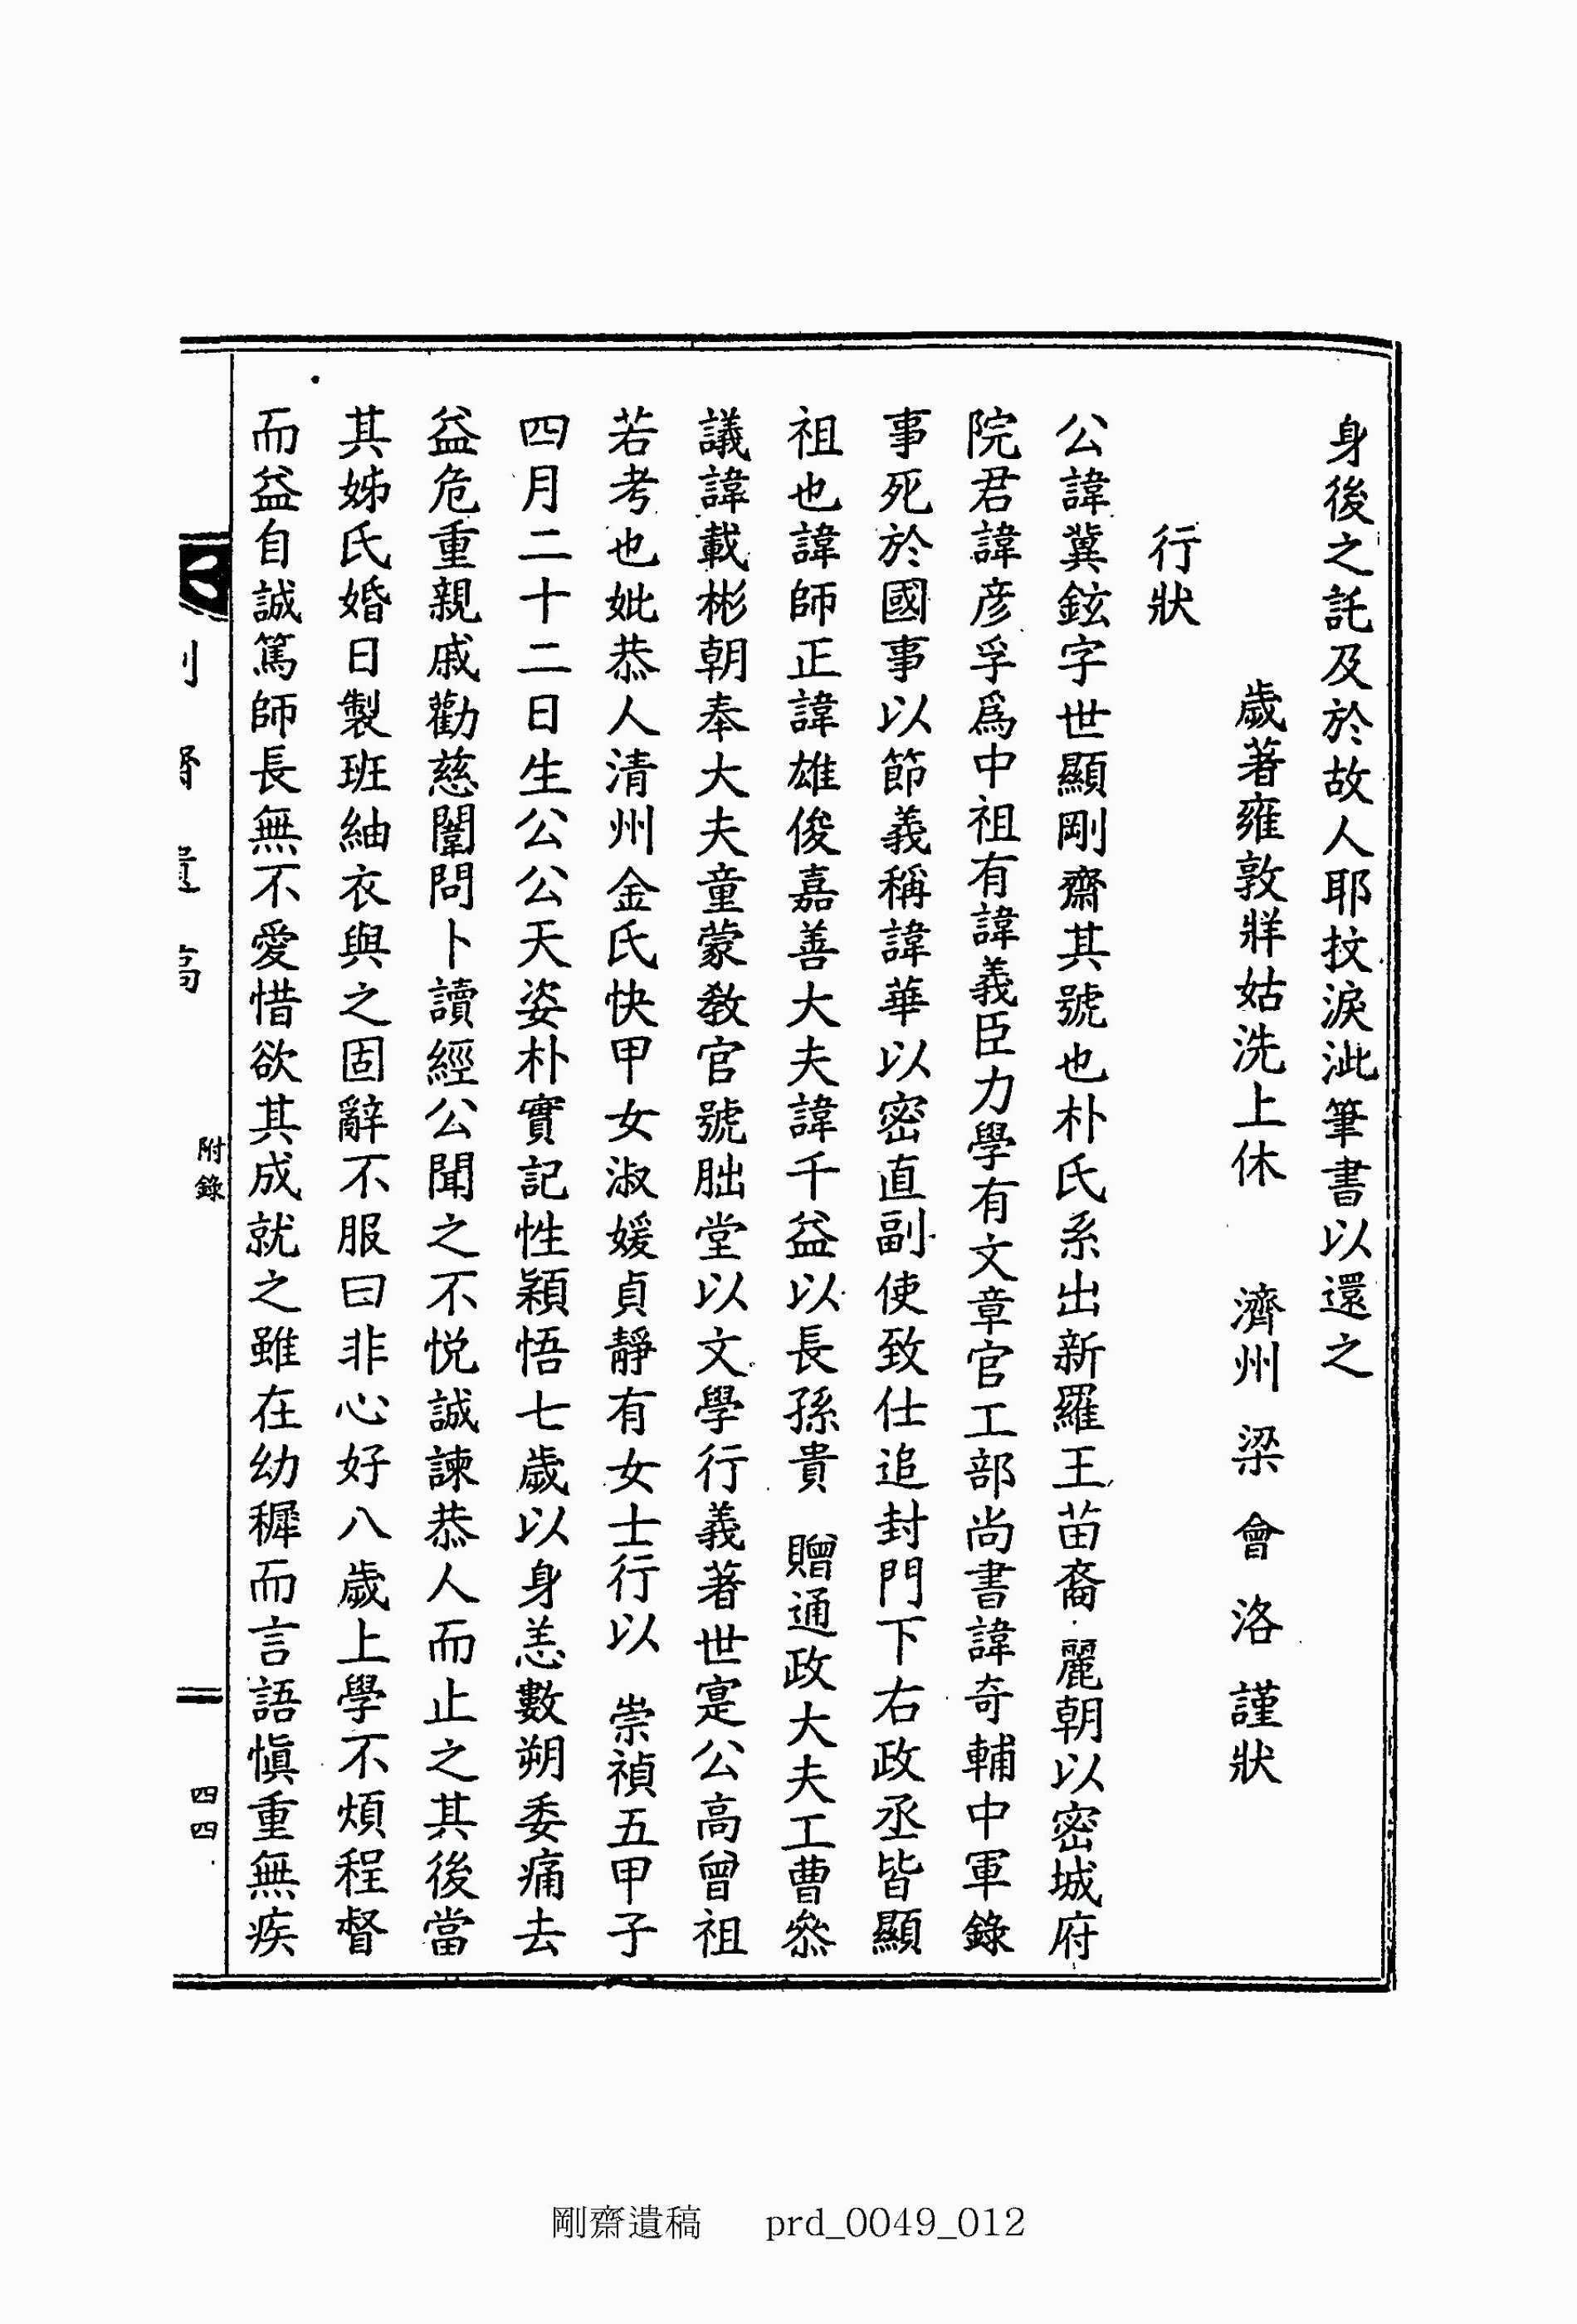 身後之託及於故人耶抆淚泚筆書以還之
歲著雍敦牂姑洗上休 濟州 梁會洛 謹狀
行狀
公諱冀鉉字世顯剛齋其號也朴氏系出新羅王苗裔麗朝以密城府
院君諱彦孚爲中祖有諱義臣力學有文章官工部尚書諱奇輔中軍錄
事死於國事以節義稱諱華以密直副使致仕追封門下右政丞皆顯
祖也諱師正諱雄俊嘉善大夫諱千益以長孫貴 贈通政大夫工曹叅
議諱載彬朝奉大夫童蒙敎官號朏堂以文學行義著世寔公高曾祖
若考也妣恭人清州金氏快甲女淑媛貞靜有女士行以 崇禎五甲子
四月二十二日生公公天姿朴實記性穎悟七歲以身恙數朔委痛去
益危重親戚勸慈闈問卜讀經公聞之不悅誠諫恭人而止之其後當
其姊氏婚日製班紬衣與之固辭不服曰非心好八歲上學不煩程督
而益自誠篤師長無不愛惜欲其成就之雖在幼穉而言語愼重無疾
剛齋遺稿
附錄
四四
剛齋遺稿 prd_0049_012